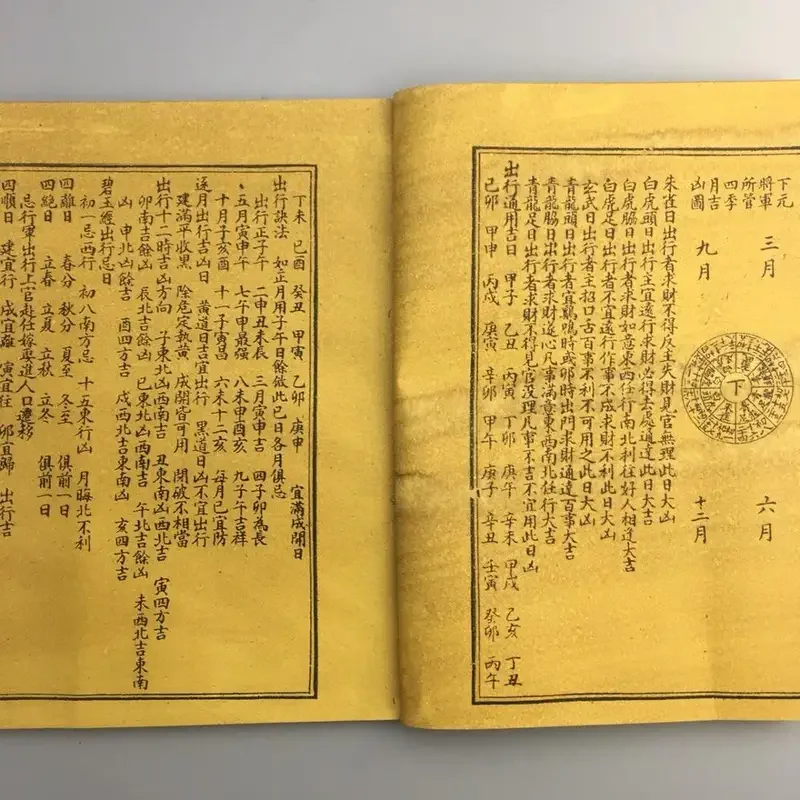 下元
將軍
所管
四季
月吉
凶圖
三月
六月
九月
十二月
下
朱雀日出行者求財不得反主失財見官無理此日大凶
白虎頭日出行主宜遠行求財必得去處通達此日大吉
白虎脇日出行者求財如意東西任行南北利往好人相逢大吉
白虎足日出行者不宜遠行作事不成求財不利此日大凶
玄武日出行者主招口舌百事不利不可用之此日大凶
青龍頭日出行者宜鷄鳴時或卯時出門求財通達百事大吉
青龍脇日出行者求財遂心凡事滿意東西南北任行大吉
青龍足日出行者求財不得見官沒理凡事不吉不宜用此日凶
出行通用吉日 甲子 乙丑 丙寅 丁卯 庚午 辛未 甲戌 乙亥 丁丑
己卯 甲申 丙戌 庚寅 辛卯 甲午 庚子 辛丑 壬寅 癸卯 丙午
丁未 已酉 癸丑 甲寅 乙卯 庚申 宜滿成開日
出行訣法 如正月用子午日餘倣此已日各月俱忌
出行正子午 二申丑未辰 三月寅申吉 四子卯為長
五月寅申午 七午甲最强 八未甲酉亥 九子午吉祥
十月子亥酉 十一子寅昌 六未十二亥 每月已宜防
逐月出行吉凶日 黃道日吉宜出行 黑道日凶不宜出行
建滿平收黑 除危定執黃 成開皆可用 閉破不相當
出行十二時吉凶方向 子東北凶西南吉 丑東南凶西北吉 寅四方吉
卯南吉餘凶 辰北吉餘凶 巳東北凶西南吉 午北吉餘凶 未西北吉東南
凶 申北凶餘吉 酉四方吉 戌西北吉東南凶 亥四方吉
碧玉經出行忌日
初一忌西行 初八南方忌 十五東行凶 月晦北不利
四離日 春分 秋分 夏至 冬至 俱前一日
四絕日 立春 立夏 立秋 立冬 俱前一日
忌行軍出行上官赴任嫁娶進人口遷移
四順日 建宜行 成宜離 寅宜往 卯宜歸 出行吉